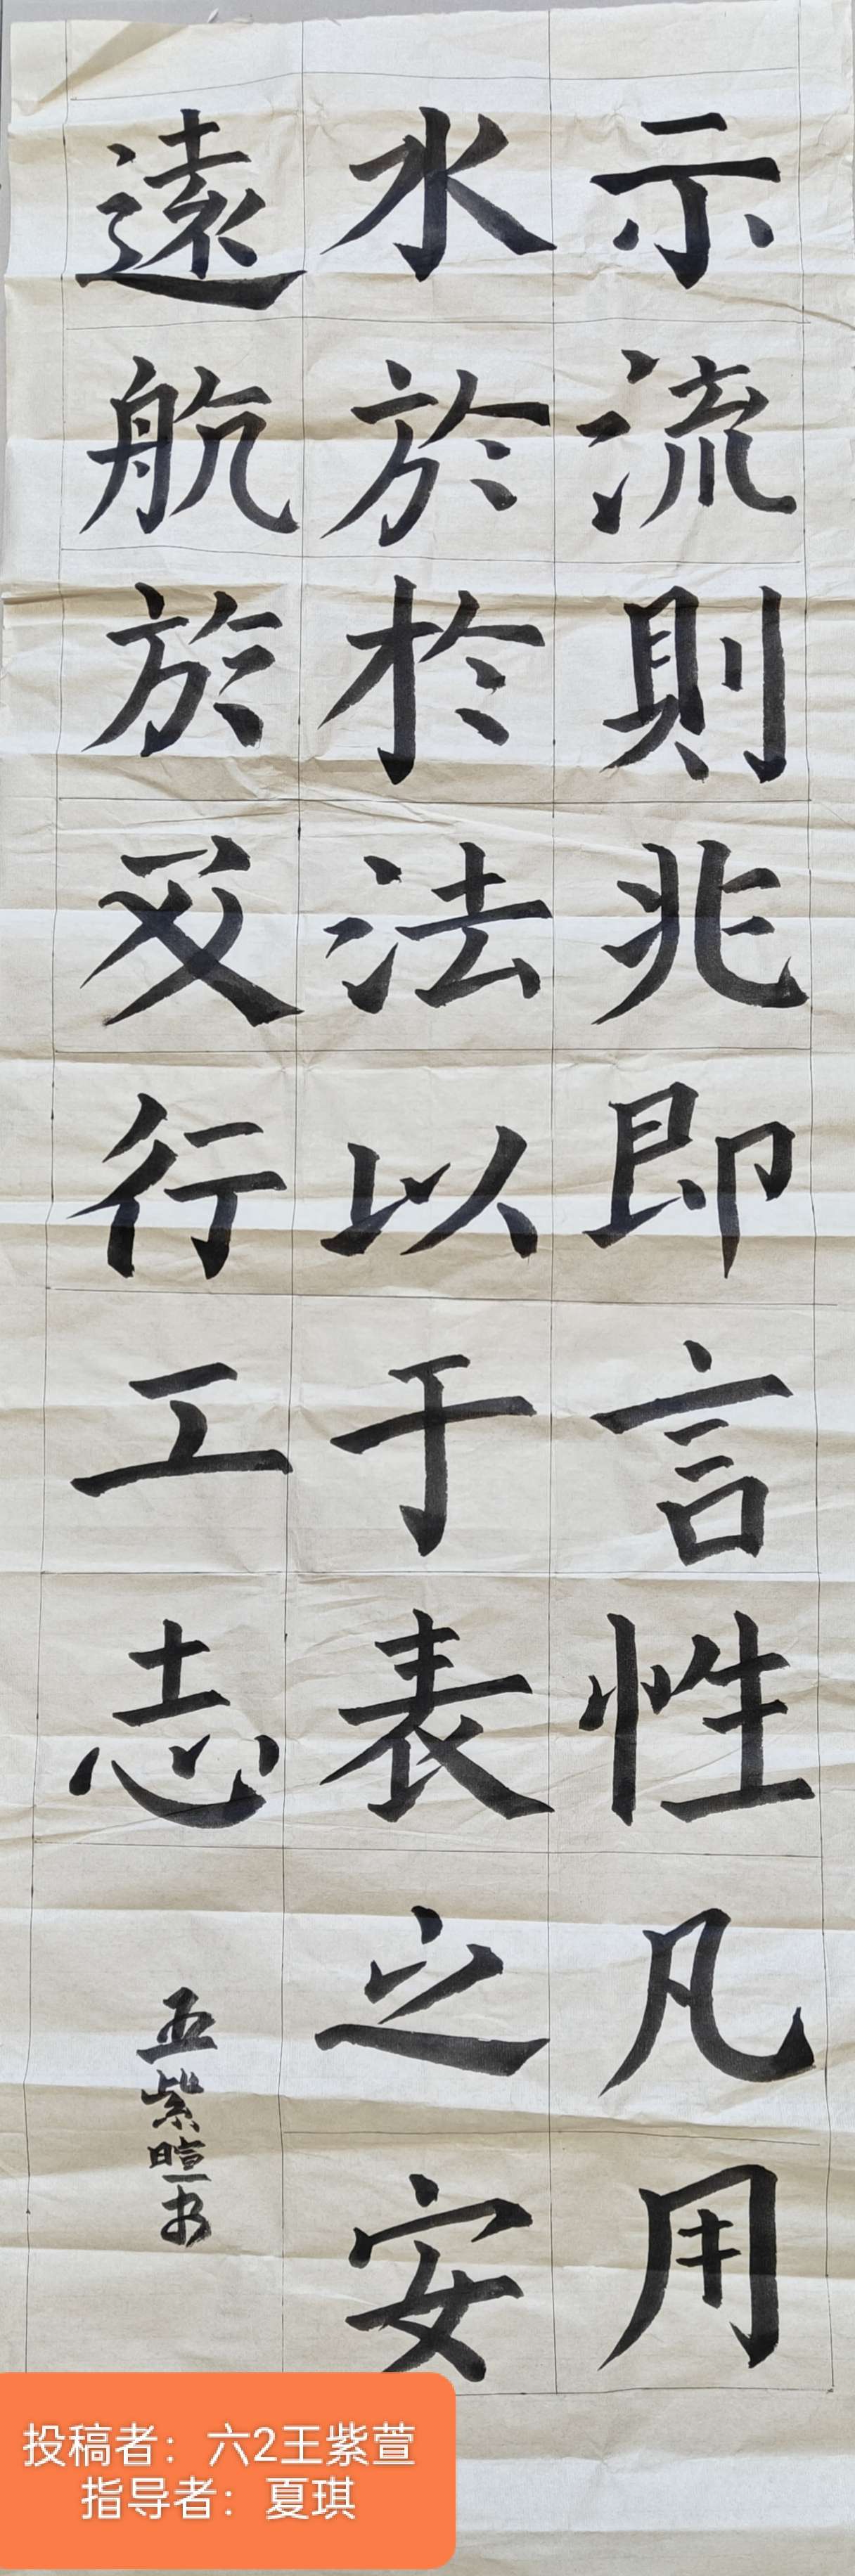 示流則兆即言性凡用
水於扵法以于表之安
遠航於行工志
王紫暄书
投稿者：六2王紫萱
指导者：夏琪